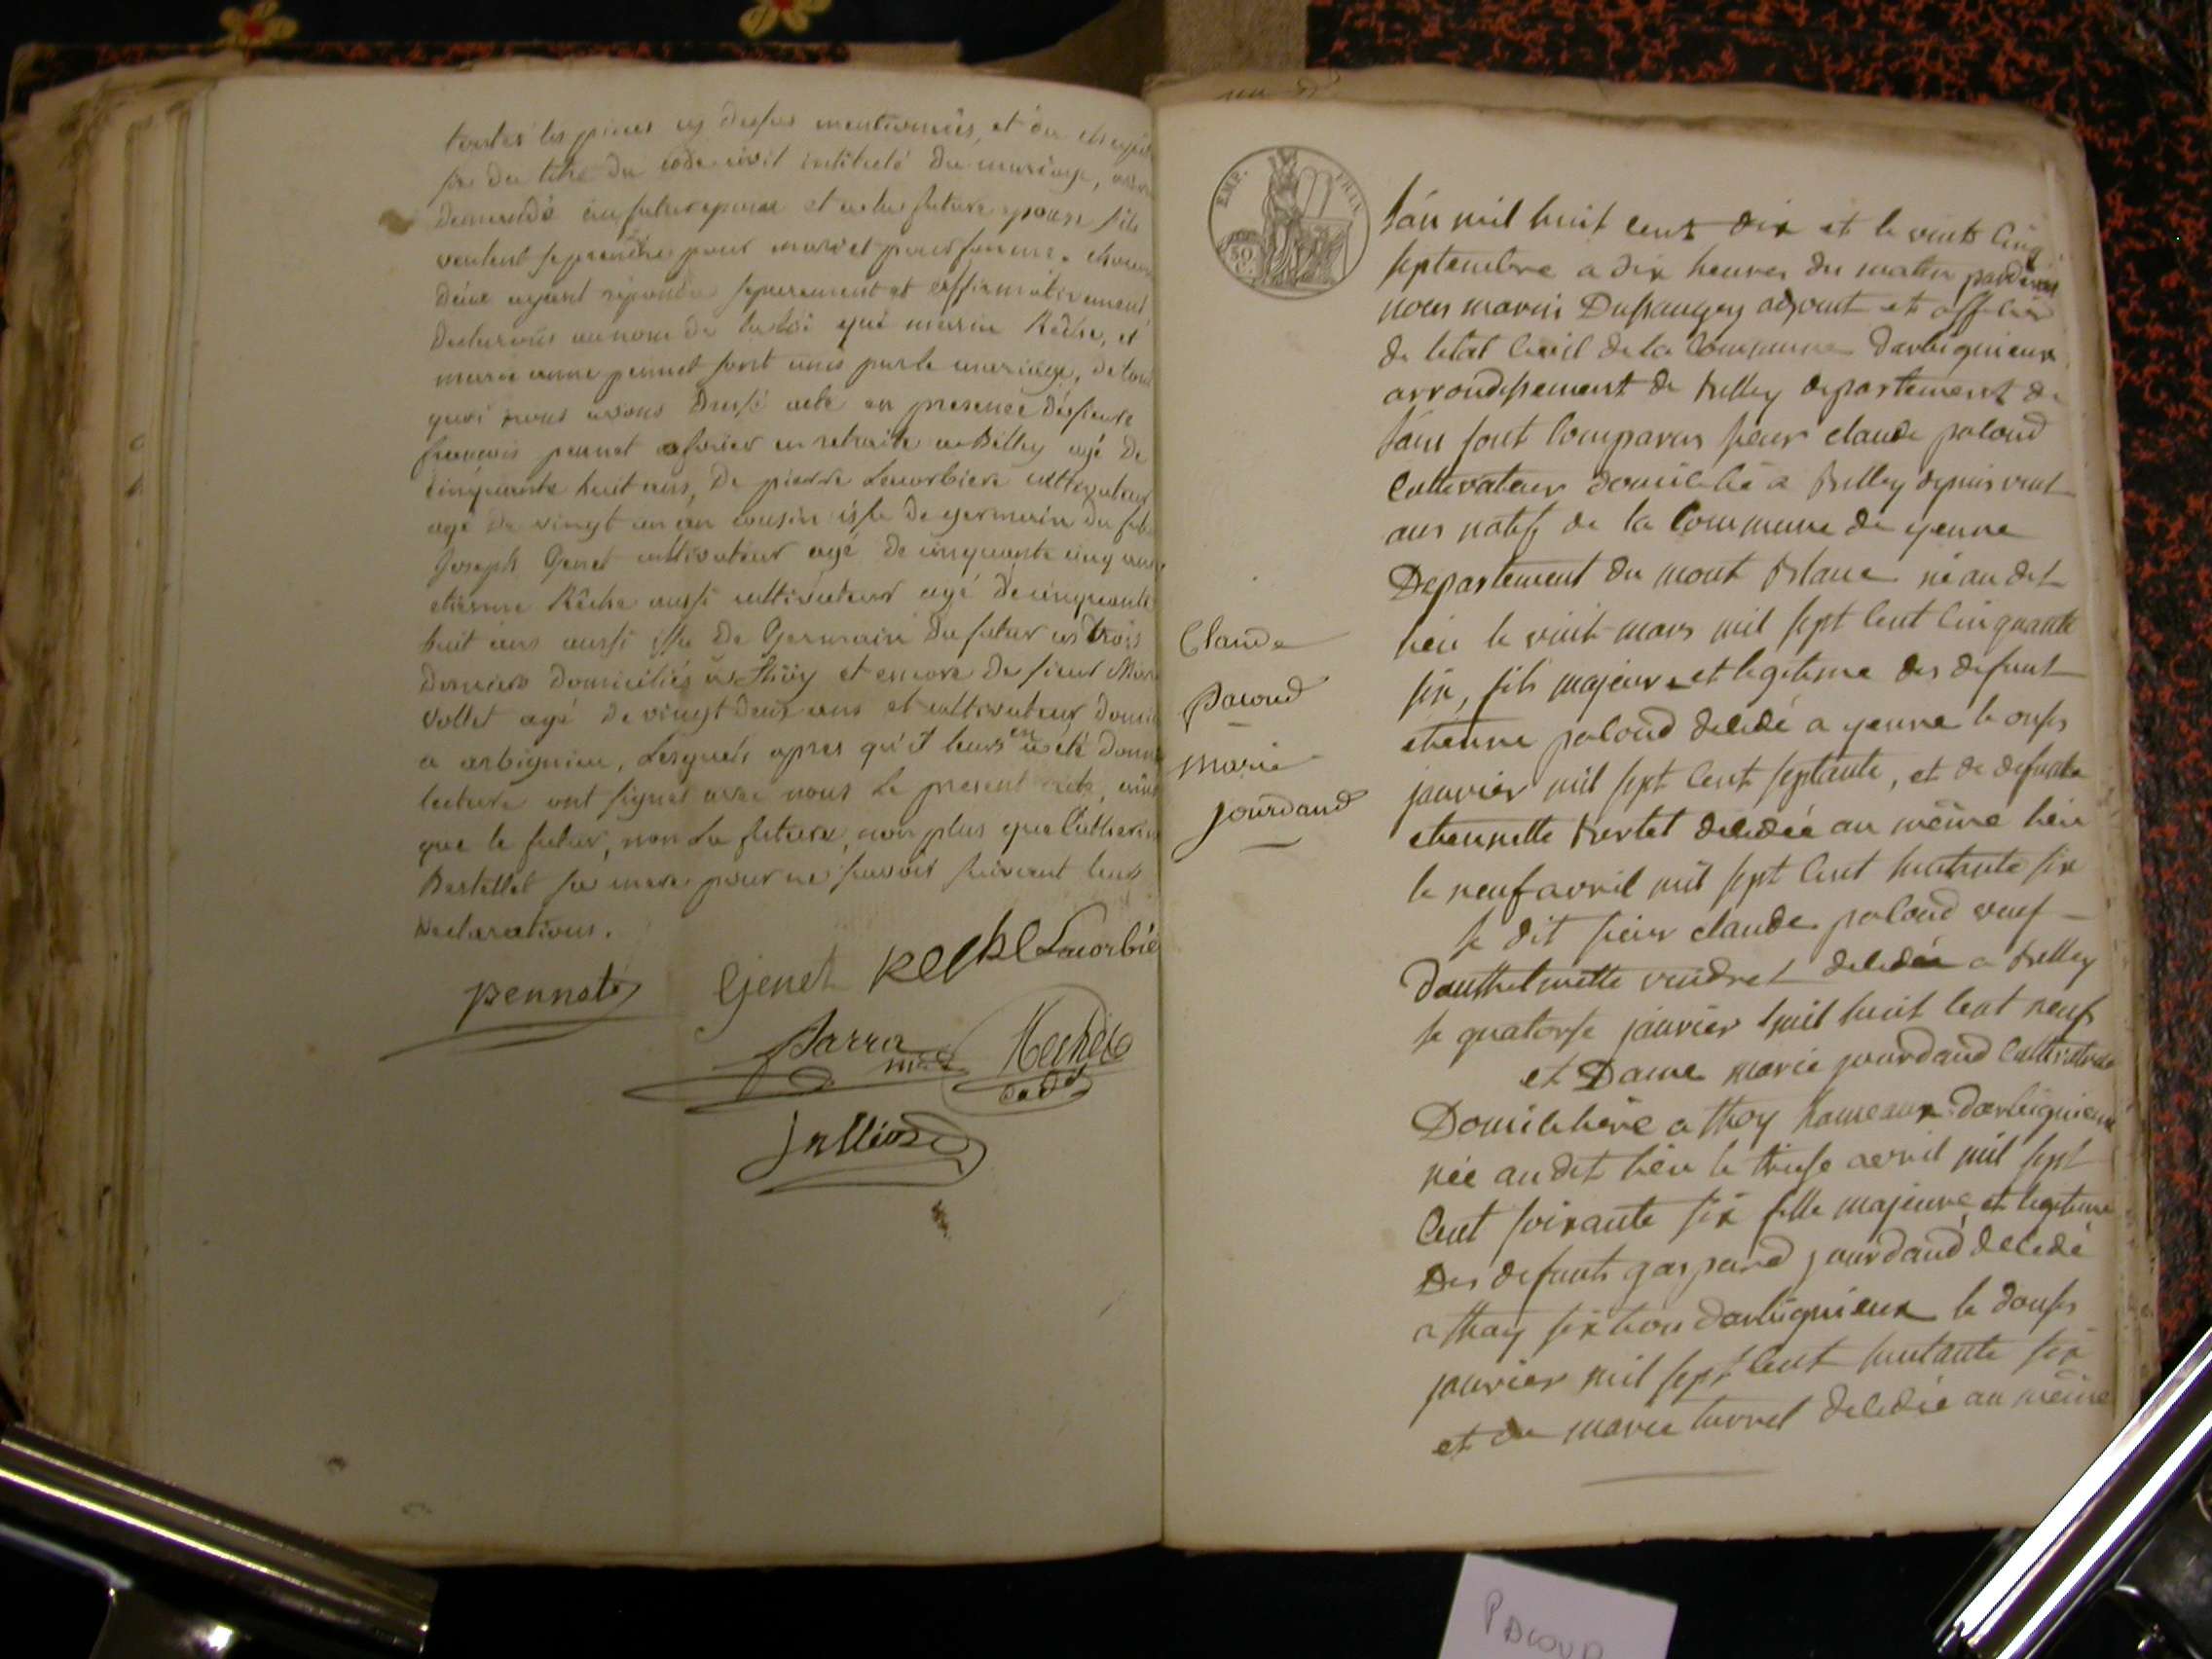 toutes les pieces cy dessus mentionnées, et du chapitre
six du titre du code civil intitulé du mariage, avons
demandé au futur epoux et a la future epouse s'ils
veulent se prendre pour mari et pour femme. chacun
deux ayant repondu separement et affirmativement,
declarons au nom de la loi que marin Rêche, et
marie anne pennet sont unis par le mariage, de tout
quoi nous avons dressé acte en presence des sieurs
francois pennet oficier en retraite a Belley agé de
cinquante huit ans, De pierre Lacorbiere cultivateur
agé de vingt un an cousin issu de germain du futur
Joseph Genet cultivateur agé de cinquante cinq ans
etienne Rêche aussi cultivateur agé de cinquante
huit ans aussi issu de Germain du futur ces trois
derniers domiciliés a Thöy et encore de sieur
Vollet agé de vingt deux ans et cultivateur domicilié
a arbignieu, Lesquels apres qu'il leurs en a été donné
lecture ont signés avec nous Le present acte, ainsi
que le futur, non La future, non plus que Catherine
Bertillet sa mere pour ne savoir suivant leurs
declarations.
pennet Genet Reche Lacorbie
Parra
Jullion
EMP. FRAN.
50 C.
Claude
pacoud
marie
jourdand
L'an mil huit cent dix et le vint cinq
septembre a dix heures du matin pardevant
nous marin Dupraugey adjoint et officier
de letat Civil de la Commune darbignieux
arrondissement de belley departement de
lain sont Comparus sieur claude pacoud
Cultivateur domicilié a belley depuis vint
ans natif de la Commune de yenne
Departement du mont blanc né au dit
lieu le vint mars mil sept cent cinquante
six, fils majeur et legitime des defunt
etienne pacoud décédé a yenne le onse
janvier mil sept cent septante, et de defunte
etiennette bertet décédée au même lieu
le neuf avril mil sept cent huitante six
le dit sieur claude pacoud veuf
danthelmette vendret décédée a belley
le quatorse janvier mil huit cent neuf
et Dame marie jourdand Cultivatrice
Domiciliére a thoy hameaux darbignieux
née au dit lieu le treise avril mil sept
Cent soixante six fille majeure et legitime
Des defunts gaspard jourdand décédé
a thoy section darbignieux le douse
janvier mil sept cent huitante six
et de marie turrel décédée au même
PACOUD